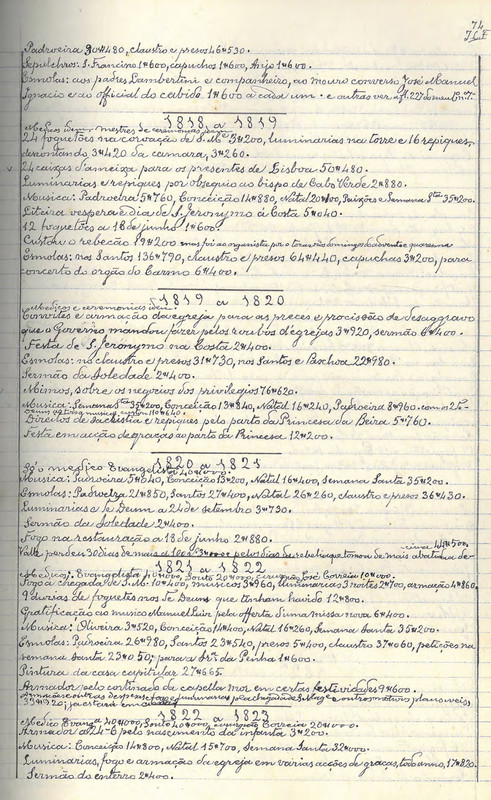 74
J.C.F.
Padroeira 30#480, claustro e presos 46#530.
Sepulchros: S. Francisco 1#600, capuchos 1#600, Anjo 1#600.
Esmolas: aos padres Lambertini e companheiro, ao mouro converso José Manuel
Ignacio e ao official do cabido 1#600 a cada um. e outras
1818 a 1819
Medico idem mestres de ceremonias idem
24 foguetões na coroação de S. Mde 3#200, luminarias na torre e 16 repiques,
descontando 3#420 da camara, 3#260.
24 caixas d'ameixa para os presentes de Lisboa 50#480.
Luminarias e repiques por obsequio ao bispo de Cabo Verde 2#880.
Musica: Padroeira 5#760, Conceição 14#880, Natal 20#100, Paixões e Semana Sta 35#200.
Liteira vespera e dia de S. Jeronymo á Costa 5#040.
12 foguetões a 18 de junho 1#600.
Custou o rebecão 19#200 mas foi ao organista por o tocar nos domingos do advento e quaresma
Esmolas: nos Santos 136#790, claustro e presos 64#440, capuchas 3#200, para
concerto do orgão do Carmo 6#400.
1819 a 1820
Medicos e ceremonias idem.
Convites e armação da egreja para as preces e procissão de desaggravo
que o Governo mandou fazer pelos roubos d'egrejas 3#920, sermão 6#400.
Festa de S. Jeronymo na Costa 2#400.
Esmolas: no claustro e presos 31#730, nos Santos e Paschoa 22#980.
Sermão da Soledade 2#400.
Mimos, sobre os negocios dos privilegios 76#620.
Musica: Semana Sta 35#200, Conceição 13#840, Natal 16#240, Padroeira 8#960.
Direitos de Sachristia e repiques pelo parto da Princesa da Beira 5#760.
Festa em acção de graças ao parto da Princesa 12#200.
1820 a 1821
Só o medico Evangelista 40#000.
Musica: Padroeira 5#640, Conceição 13#200, Natal 16#400, Semana Santa 35#200.
Esmolas: Padroeira 21#850, Santos 27#400, Natal 26#260, claustro e presos 36#430.
Luminarias e Te Deum a 24 de setembro 3#730.
Sermão da Soledade 2#400.
Fogo na restauração a 18 de junho 2#880.
1821 a 1822
Medicos: Evangelista 40#000, Souto 20#000, cirurgião José Correia 10#000.
Fogo á chegada de S. M. 10#400, musicos 3#960, luminarias 3 noutes 2#700, armação 4#860,
9 duzias de foguetes nos Te Deuns que tinham havido 12#800.
Gratificação ao musico Manuel Luiz pela offerta d'uma missa nova 6#400.
Musica: Oliveira 3#520, Conceição 14#400, Natal 16#260, Semana Santa 35#200.
Esmolas: Padroeira 26#980, Santos 23#540, presos 5#400, claustro 37#060, petições na
semana Santa 23#050; para a Sra da Penha 1#600.
Pintura da casa capitular 27#665.
Armador pelo cortinado da capella mor em certas festividades 9#600.
1822 a 1823
Medico Evangta 40#000, Souto 40#000, cirurgião Correia 20#000.
Armador a 24-6 pelo nascimento da infanta 3#200.
Musica: Conceição 14#800, Natal 15#700, Semana Santa 32#000.
Luminarias, fogo e armação da egreja em varias acções de graças, todo anno, 17#820.
Sermão do enterro 2#400.